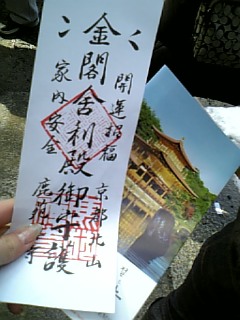 開運招福
金閣舎利殿御守護
家内安全
京都北山
鹿苑寺